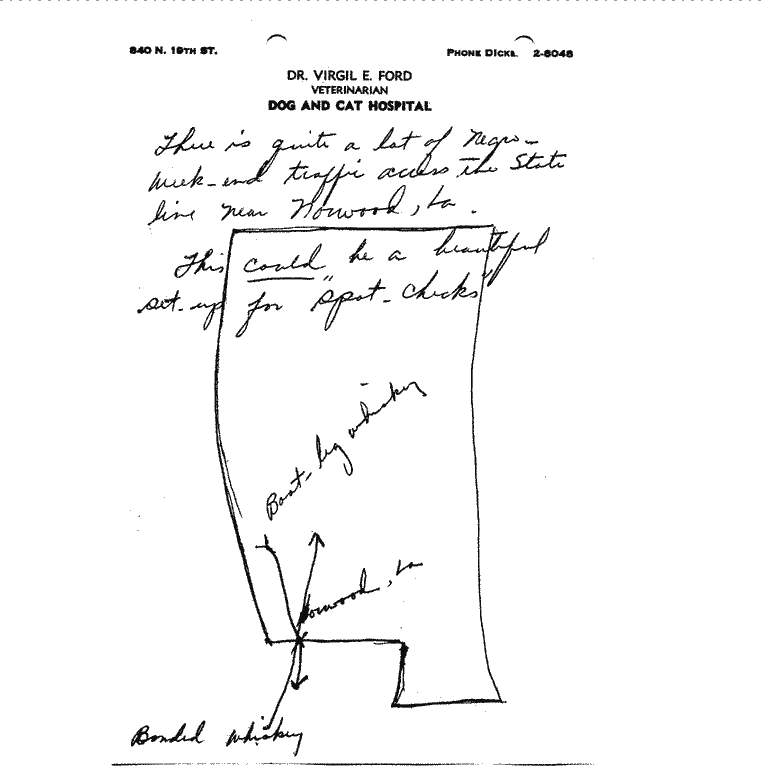 840 N. 19TH ST.
PHONE DICKS. 2-8048
DR. VIRGIL E. FORD
VETERINARIAN
DOG AND CAT HOSPITAL
There is quite a lot of Negro-
week-end traffic across the State
line near Norwood, La.
This could be a beautiful
set-up for "spot-checks"
Boot-leg whiskey
Norwood, La
Bonded whiskey